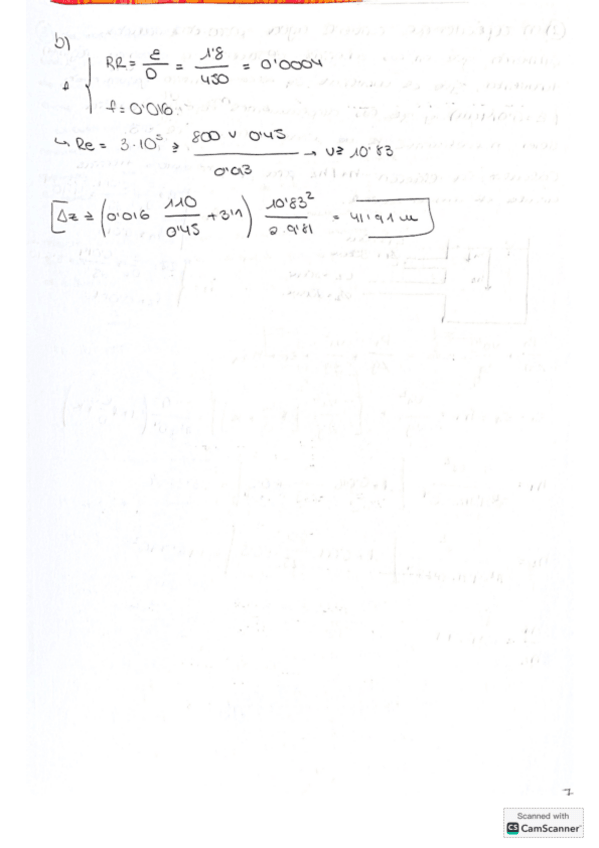 b)
RR = ε/D = 1'8/450 = 0'0004
f = 0'016
↳ Re = 3·10⁵ ≥ 800 v 0'45 / 0'013 → v ≥ 10'83
[Δz ≥ (0'016 110/0'45 + 3'1) 10'83²/2·9'81 = 41'91 m]
7
Scanned with
CS CamScanner